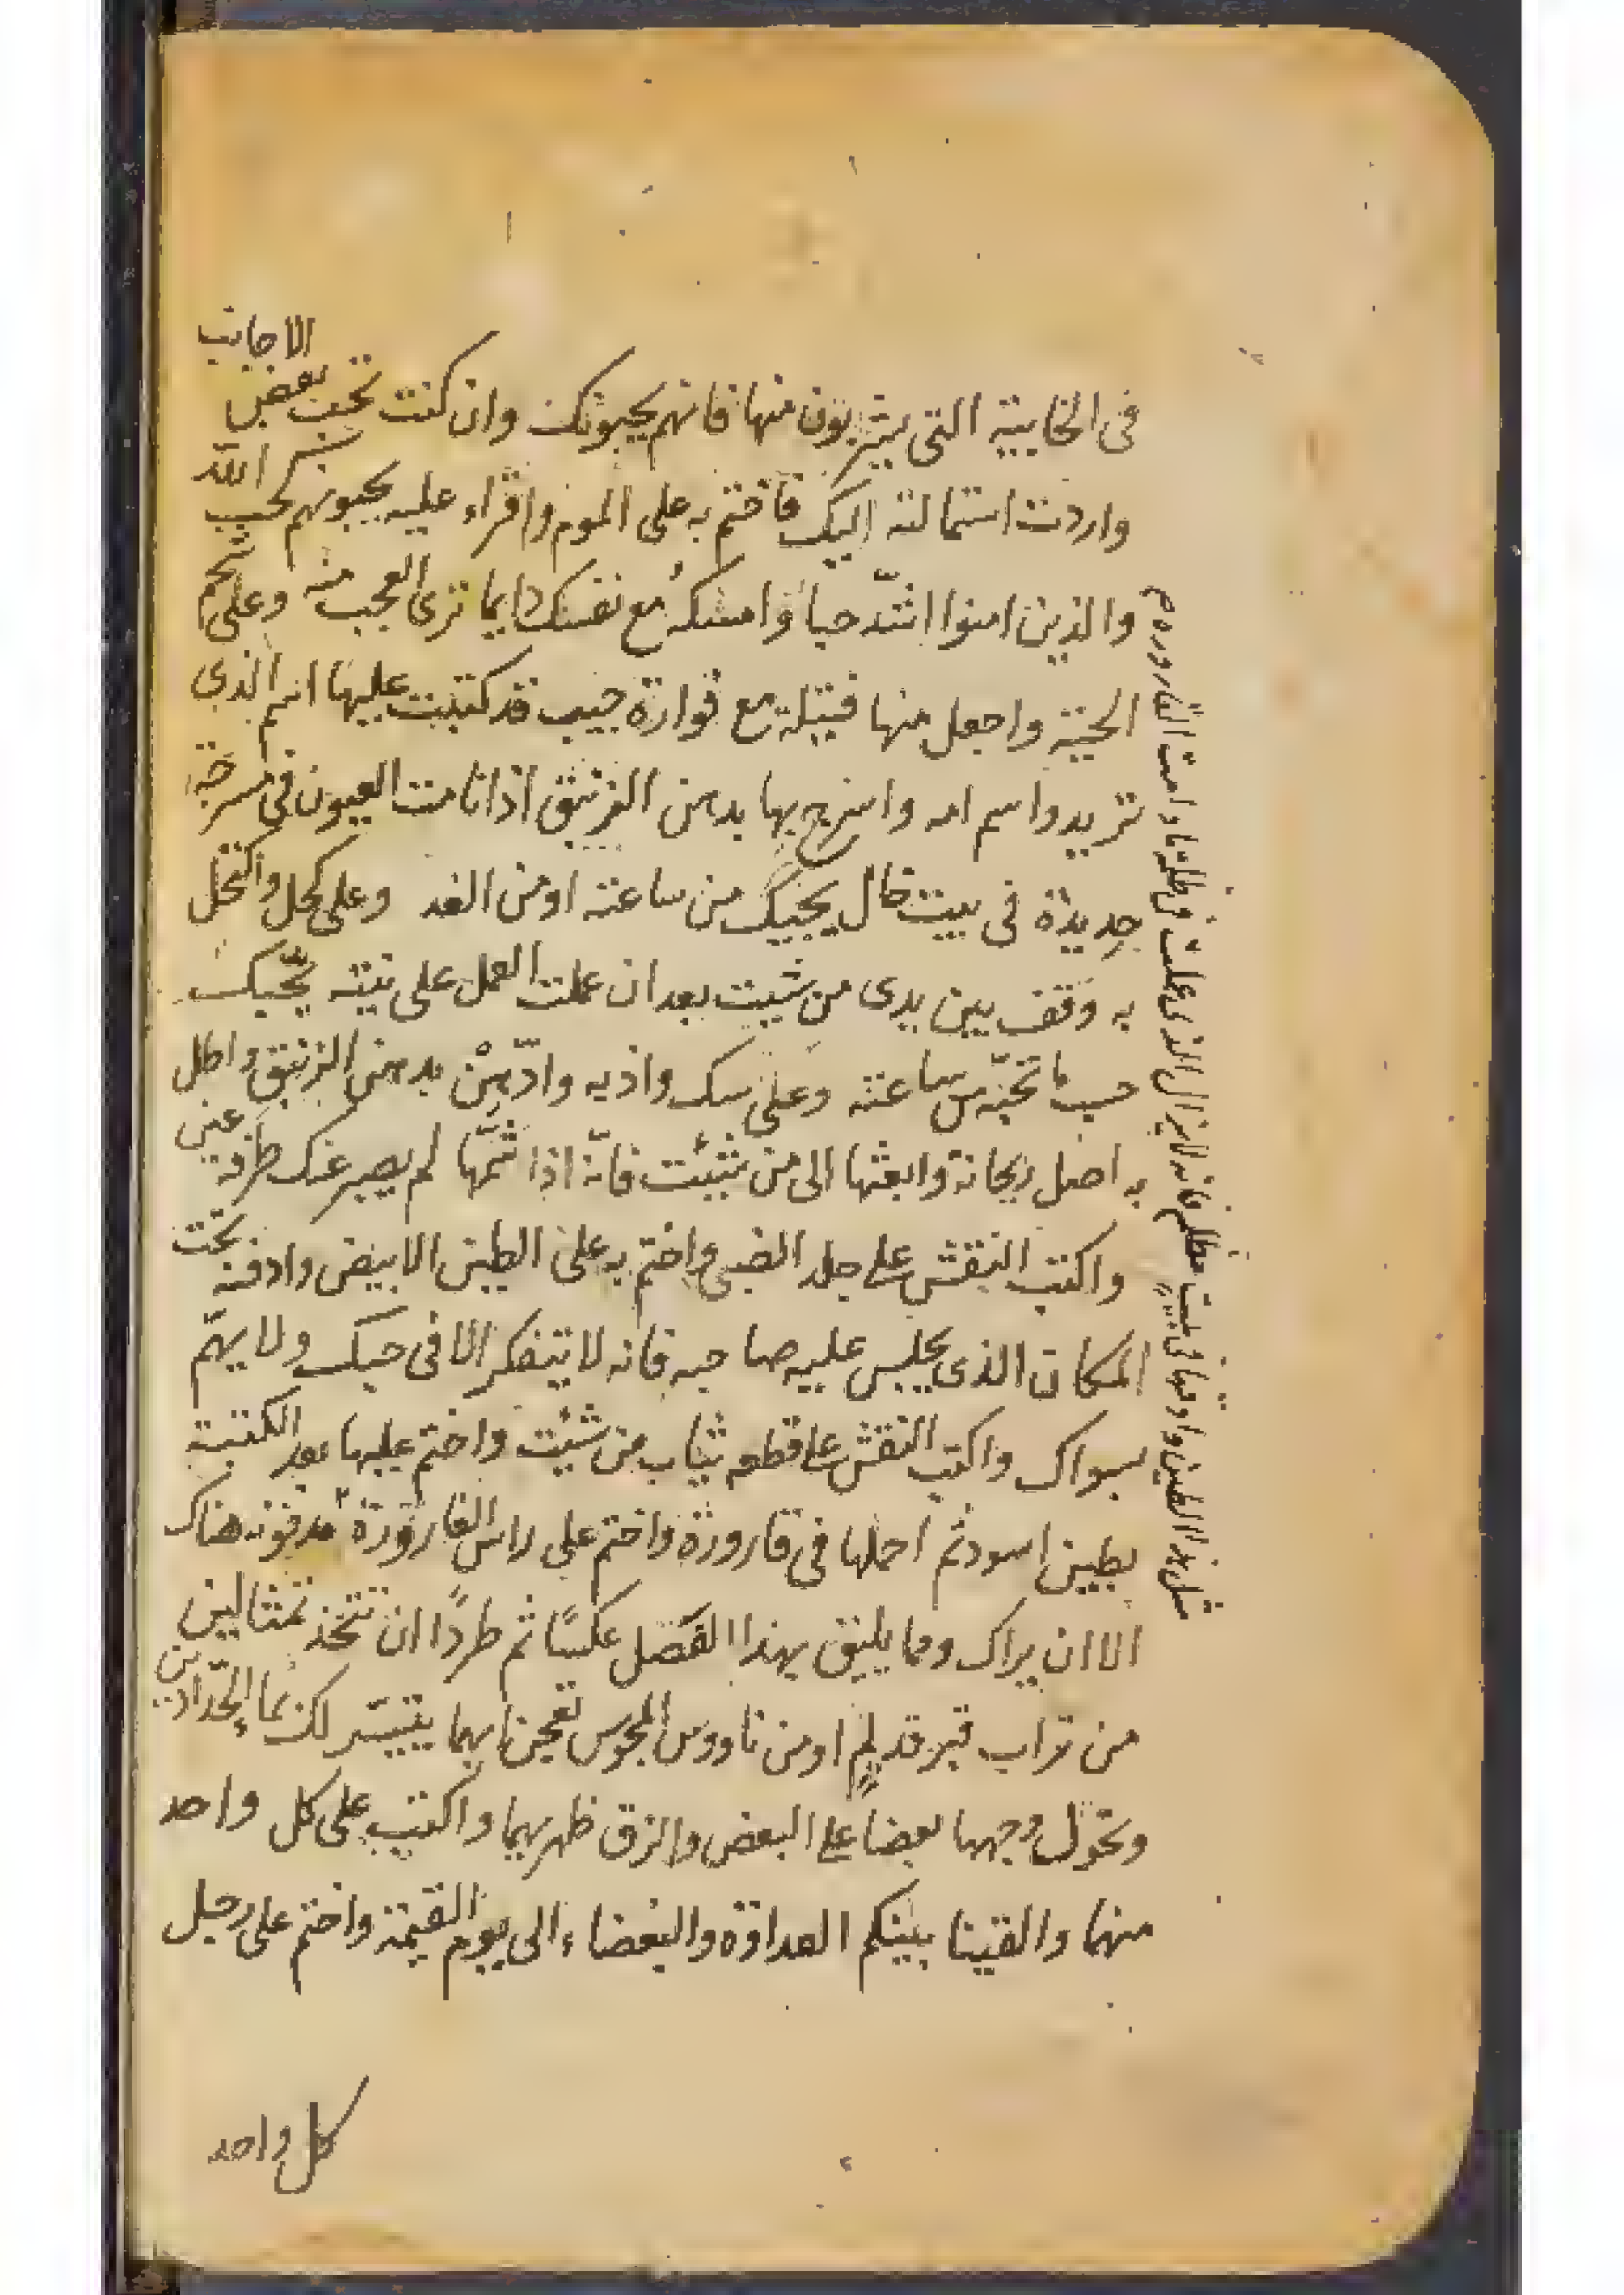 فى الخابية التى يشربون منها فانهم يحبونك وان كنت تحب بعض الاجانب
واردت استمالته اليك فاختم به على الموم واقراء عليه يحبونهم كحب الله
والذين امنوا اشدّ حبا وامسكه مع نفسك دايما ترى العجب منه وعلى شحم
الحية واجعل منها فتيلة مع قوارة جيب قد كتبت عليها اسم الذى
تريد واسم امه واسرج بها بدهن الزنبق اذا نامت العيون فى مسرجة
جديدة فى بيت خال يجيك من ساعته او من الغد وعلى كحل واكتحل
به وقف بين يدى من شيت بعد ان عملت العمل على نيته يحبّك
حب ما تحبّه من ساعته وعلى سك واذبه وادّهن بدهن الزنبق واطل
به اصل ريحانة وابعثها الى من شئت فانّه اذا شمّها لم يصبر عنك طرفة عين
واكتب النقش على جلد الضبى واختم به على الطين الابيض وادفنه تحت
المكان الذى يجلس عليه صاحبه فانه لا يتفكر الا فى حبك ولا يهتم
بسواك واكتب النقش على قطعه ثياب من شئت واختم عليها بعد الكتبة
بطين اسود ثم احملها فى قارورة واختم على راس القارورة مدفونه هناك
الا ان يراك ومما يليق بهذا الفصل عكسًا ثم طردًا ان تتخذ تمثالين
من تراب قبر قديم او من ناووس المجوس تعجنا بهما يتيسّر لك بما الحدّادين
وتحوّل وجهها بعضا على البعض والزق ظهريهما واكتب على كل واحد
منهما والقينا بينكم العداوة والبغضاء الى يوم القيمة واختم على رجل
كل واحد
الطين وادفنها فى بيت مظلم فانه لايزال الذى عملت فى طلبه ما دامت القارورة